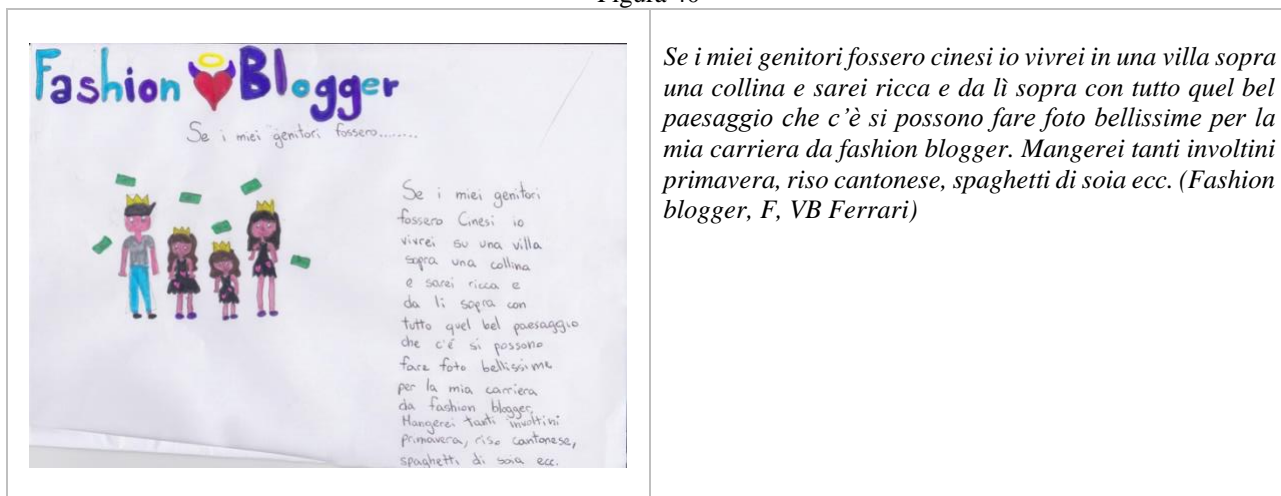 Fashion Blogger
Se i miei genitori fossero........
Se i miei genitori
fossero Cinesi io
vivrei su una villa
sopra una collina
e sarei ricca e
da li sopra con
tutto quel bel paesaggio
che c'é si possono
fare foto bellissime
per la mia carriera
da fashion blogger.
Mangerei tanti involtini
primavera, riso cantonese,
spaghetti di soia ecc.
Se i miei genitori fossero cinesi io vivrei in una villa sopra
una collina e sarei ricca e da lì sopra con tutto quel bel
paesaggio che c’è si possono fare foto bellissime per la
mia carriera da fashion blogger. Mangerei tanti involtini
primavera, riso cantonese, spaghetti di soia ecc. (Fashion
blogger, F, VB Ferrari)